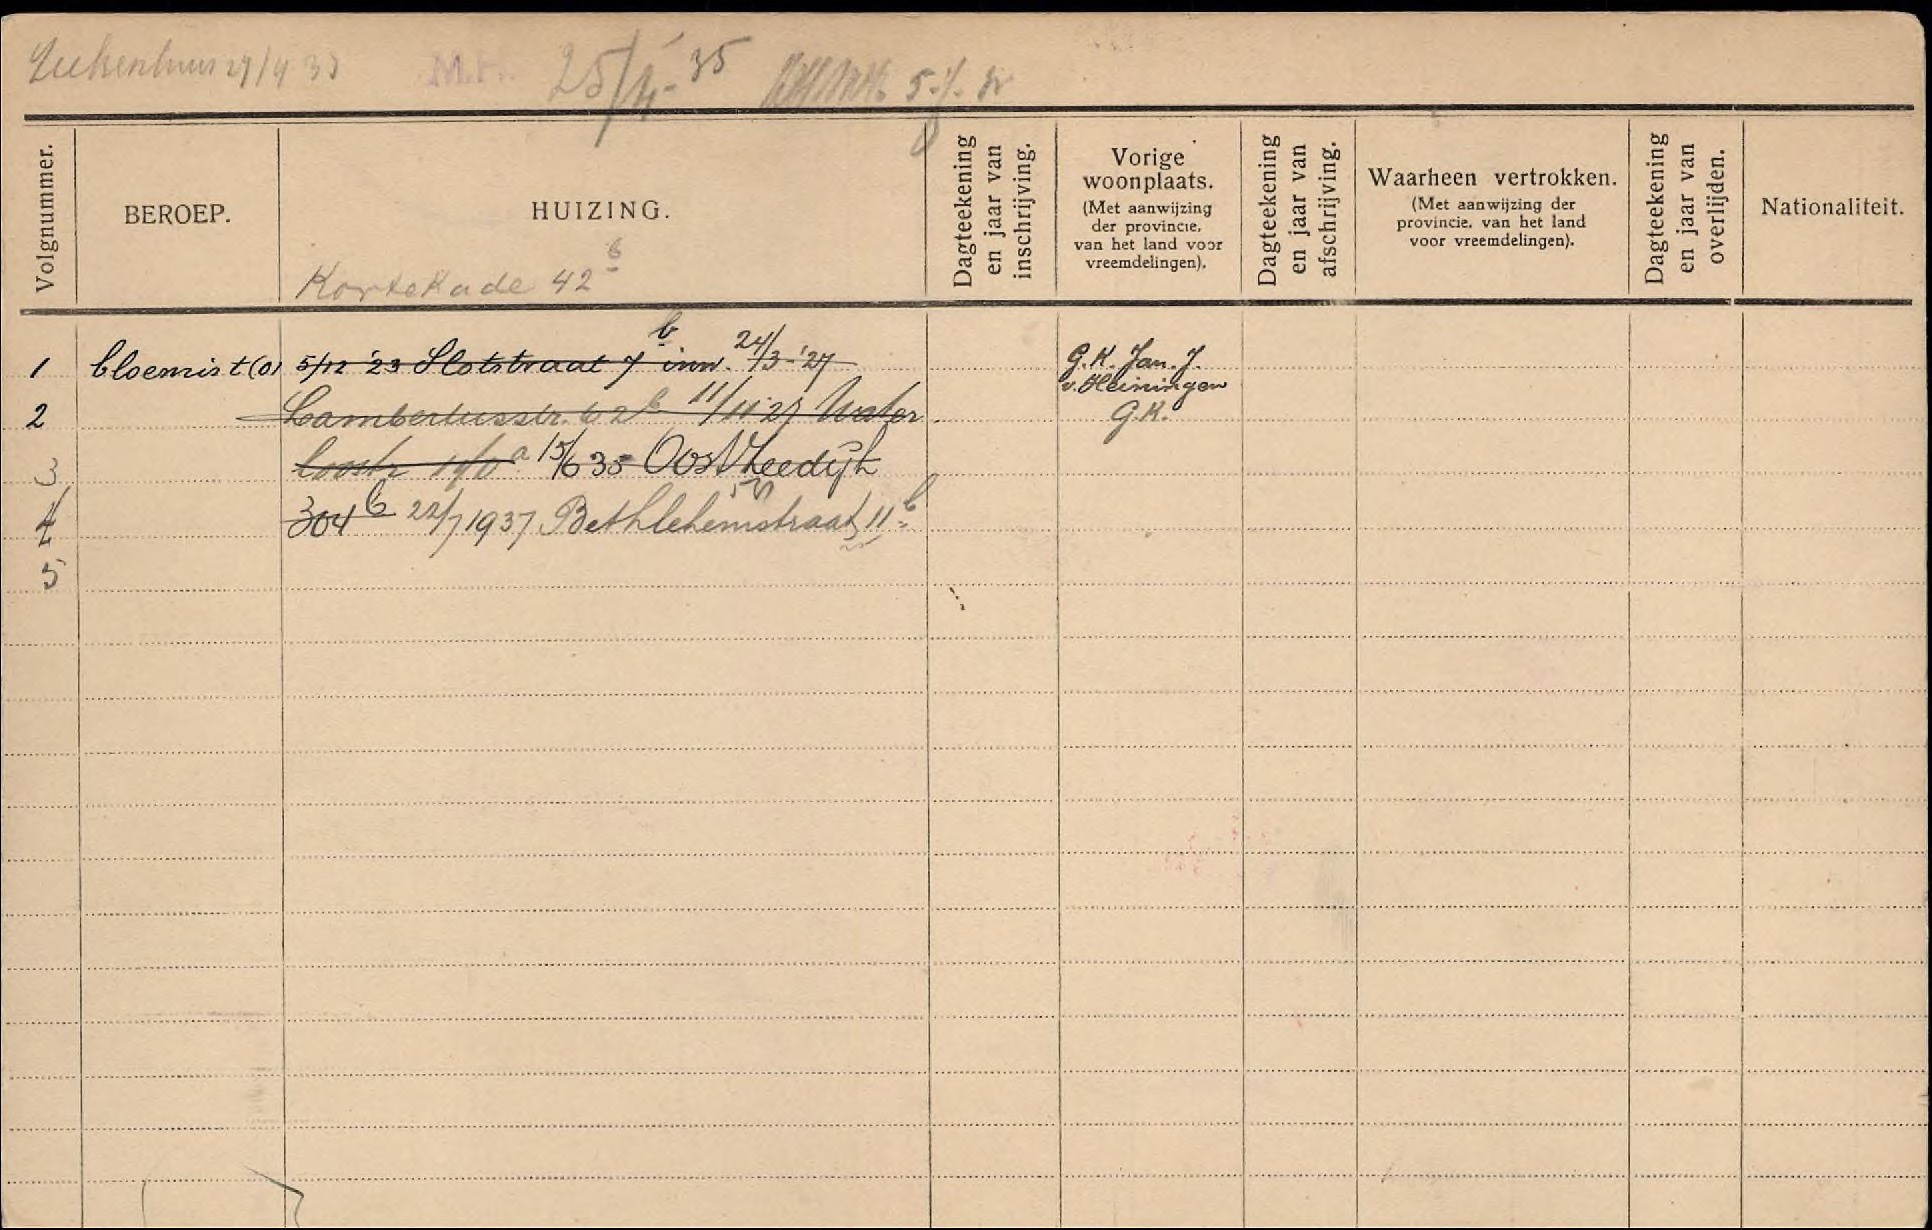 M.H. 25/4-35
Volgnummer.
BEROEP.
HUIZING.
Kortekade 42 b
Dagteekening
en jaar van
inschrijving.
Vorige
woonplaats.
(Met aanwijzing
der provincie,
van het land voor
vreemdelingen).
Dagteekening
en jaar van
afschrijving.
Waarheen vertrokken.
(Met aanwijzing der
provincie, van het land
voor vreemdelingen).
Dagteekening
en jaar van
overlijden.
Nationaliteit.
1 bloemist (o) 5/12 '23 Slotstraat 7 b inw. 24/3-'27
G.K. Jan. J.
v. Heiningen
2 Lambertusstr. 62 b 11/11 27 Water
G.K.
3 loostr a 15/6 35 Oost Zeedijk
4 304 b 22/7 1937 Bethlehemstraat 11 b
5